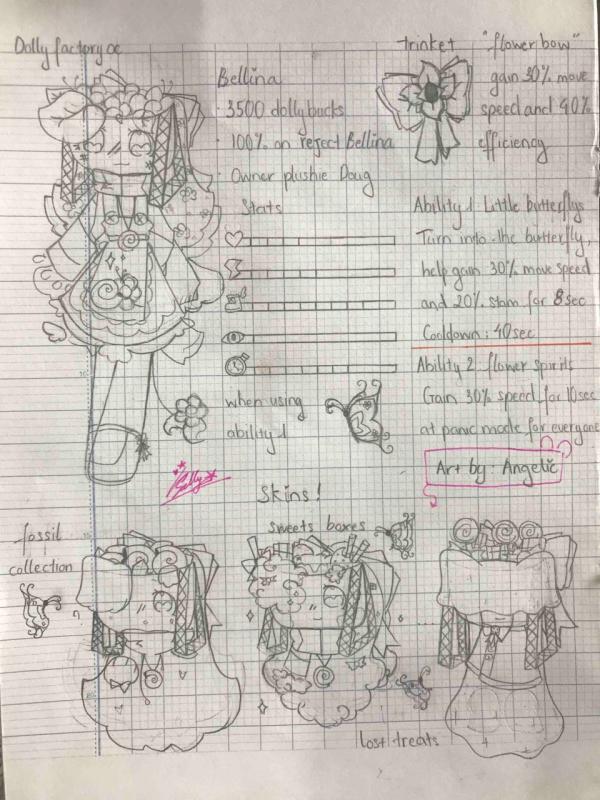 Dolly factory oc
Bellina
· 3500 dollybucks
· 100% on reject Bellina
· Owner plushie Doug
Stats
when using
ability 1
trinket "flowerbow"
gain 30% move
speed and 40%
efficiency
Ability 1 Little butterflys
Turn into the butterfly,
help gain 30% move speed
and 20% stam for 8sec
Cooldown: 40sec
Ability 2 flower spirits
Gain 30% speed for 10sec
at panic mode for everyone
Art by: Angelic
Skins!
fossil
collection
sweets boxes
lost treats